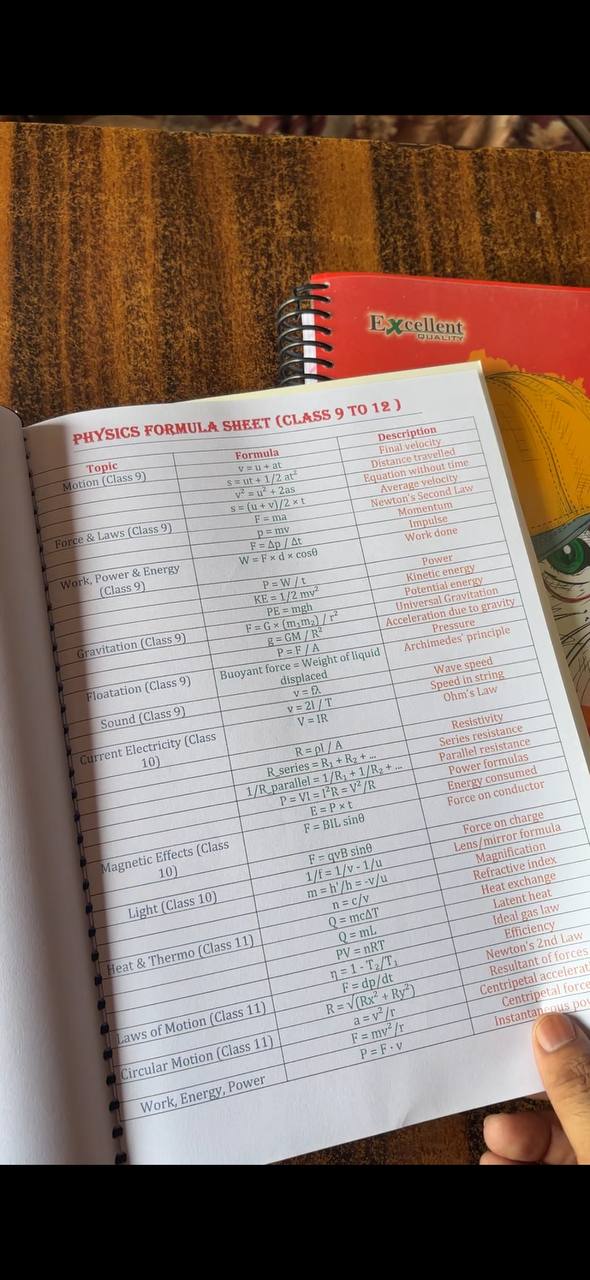 Excellent
QUALITY
PHYSICS FORMULA SHEET (CLASS 9 TO 12 )
Topic Formula Description
Motion (Class 9) v = u + at Final velocity
s = ut + 1/2 at² Distance travelled
v² = u² + 2as Equation without time
s = (u + v)/2 × t Average velocity
Force & Laws (Class 9) F = ma Newton's Second Law
p = mv Momentum
F = Δp / Δt Impulse
Work, Power & Energy (Class 9) W = F × d × cosθ Work done
P = W / t Power
KE = 1/2 mv² Kinetic energy
PE = mgh Potential energy
Gravitation (Class 9) F = G × (m₁m₂) / r² Universal Gravitation
g = GM / R² Acceleration due to gravity
P = F / A Pressure
Floatation (Class 9) Buoyant force = Weight of liquid displaced Archimedes' principle
Sound (Class 9) v = fλ Wave speed
v = 2l / T Speed in string
Current Electricity (Class 10) V = IR Ohm's Law
R = ρl / A Resistivity
R_series = R₁ + R₂ + ... Series resistance
1/R_parallel = 1/R₁ + 1/R₂ + ... Parallel resistance
P = VI = I²R = V²/R Power formulas
E = P × t Energy consumed
Magnetic Effects (Class 10) F = BIL sinθ Force on conductor
F = qvB sinθ Force on charge
Light (Class 10) 1/f = 1/v - 1/u Lens/mirror formula
m = h'/h = -v/u Magnification
n = c/v Refractive index
Heat & Thermo (Class 11) Q = mcΔT Heat exchange
Q = mL Latent heat
PV = nRT Ideal gas law
η = 1 - T₂/T₁ Efficiency
Laws of Motion (Class 11) F = dp/dt Newton's 2nd Law
R = √(Rx² + Ry²) Resultant of forces
Circular Motion (Class 11) a = v²/r Centripetal accelerat
F = mv²/r Centripetal force
Work, Energy, Power P = F · v Instantaneous po